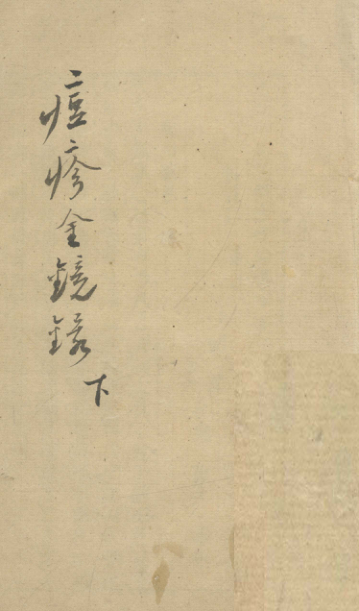 痘疹金鏡錄
下